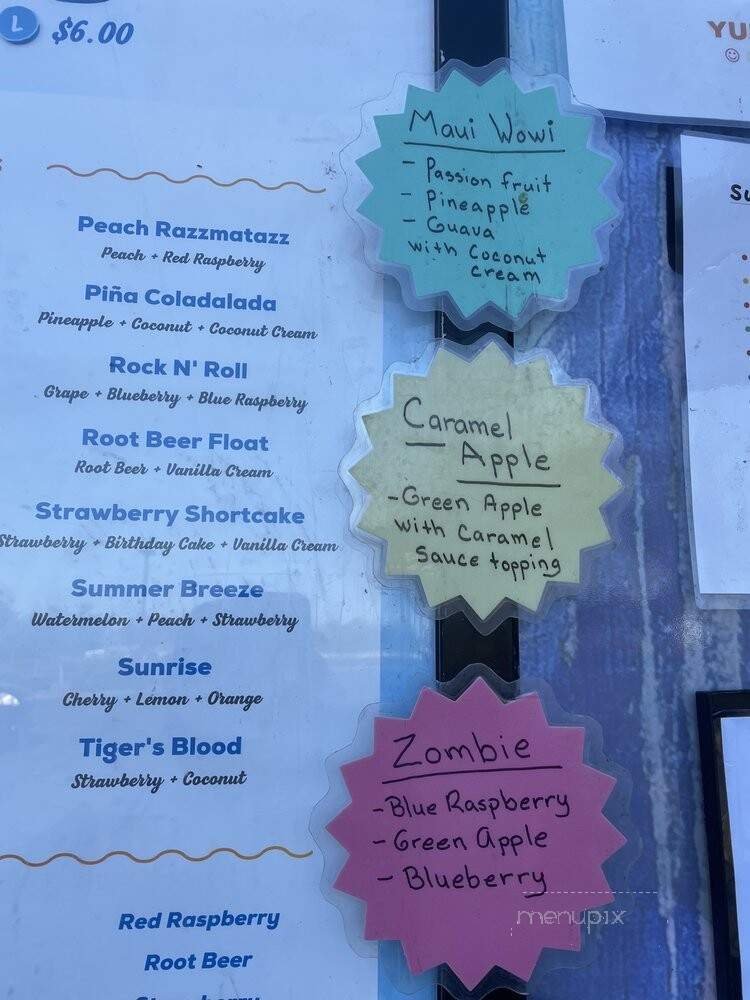 L $6.00
Peach Razzmatazz
Peach + Red Raspberry
Piña Coladalada
Pineapple + Coconut + Coconut Cream
Rock N' Roll
Grape + Blueberry + Blue Raspberry
Root Beer Float
Root Beer + Vanilla Cream
Strawberry Shortcake
Strawberry + Birthday Cake + Vanilla Cream
Summer Breeze
Watermelon + Peach + Strawberry
Sunrise
Cherry + Lemon + Orange
Tiger's Blood
Strawberry + Coconut
Red Raspberry
Root Beer
Maui Wowi
- Passion fruit
- Pineapple
- Guava
with Coconut
cream
Caramel
Apple
-Green Apple
with Caramel
Sauce topping
Zombie
-Blue Raspberry
-Green Apple
- Blueberry
menupix